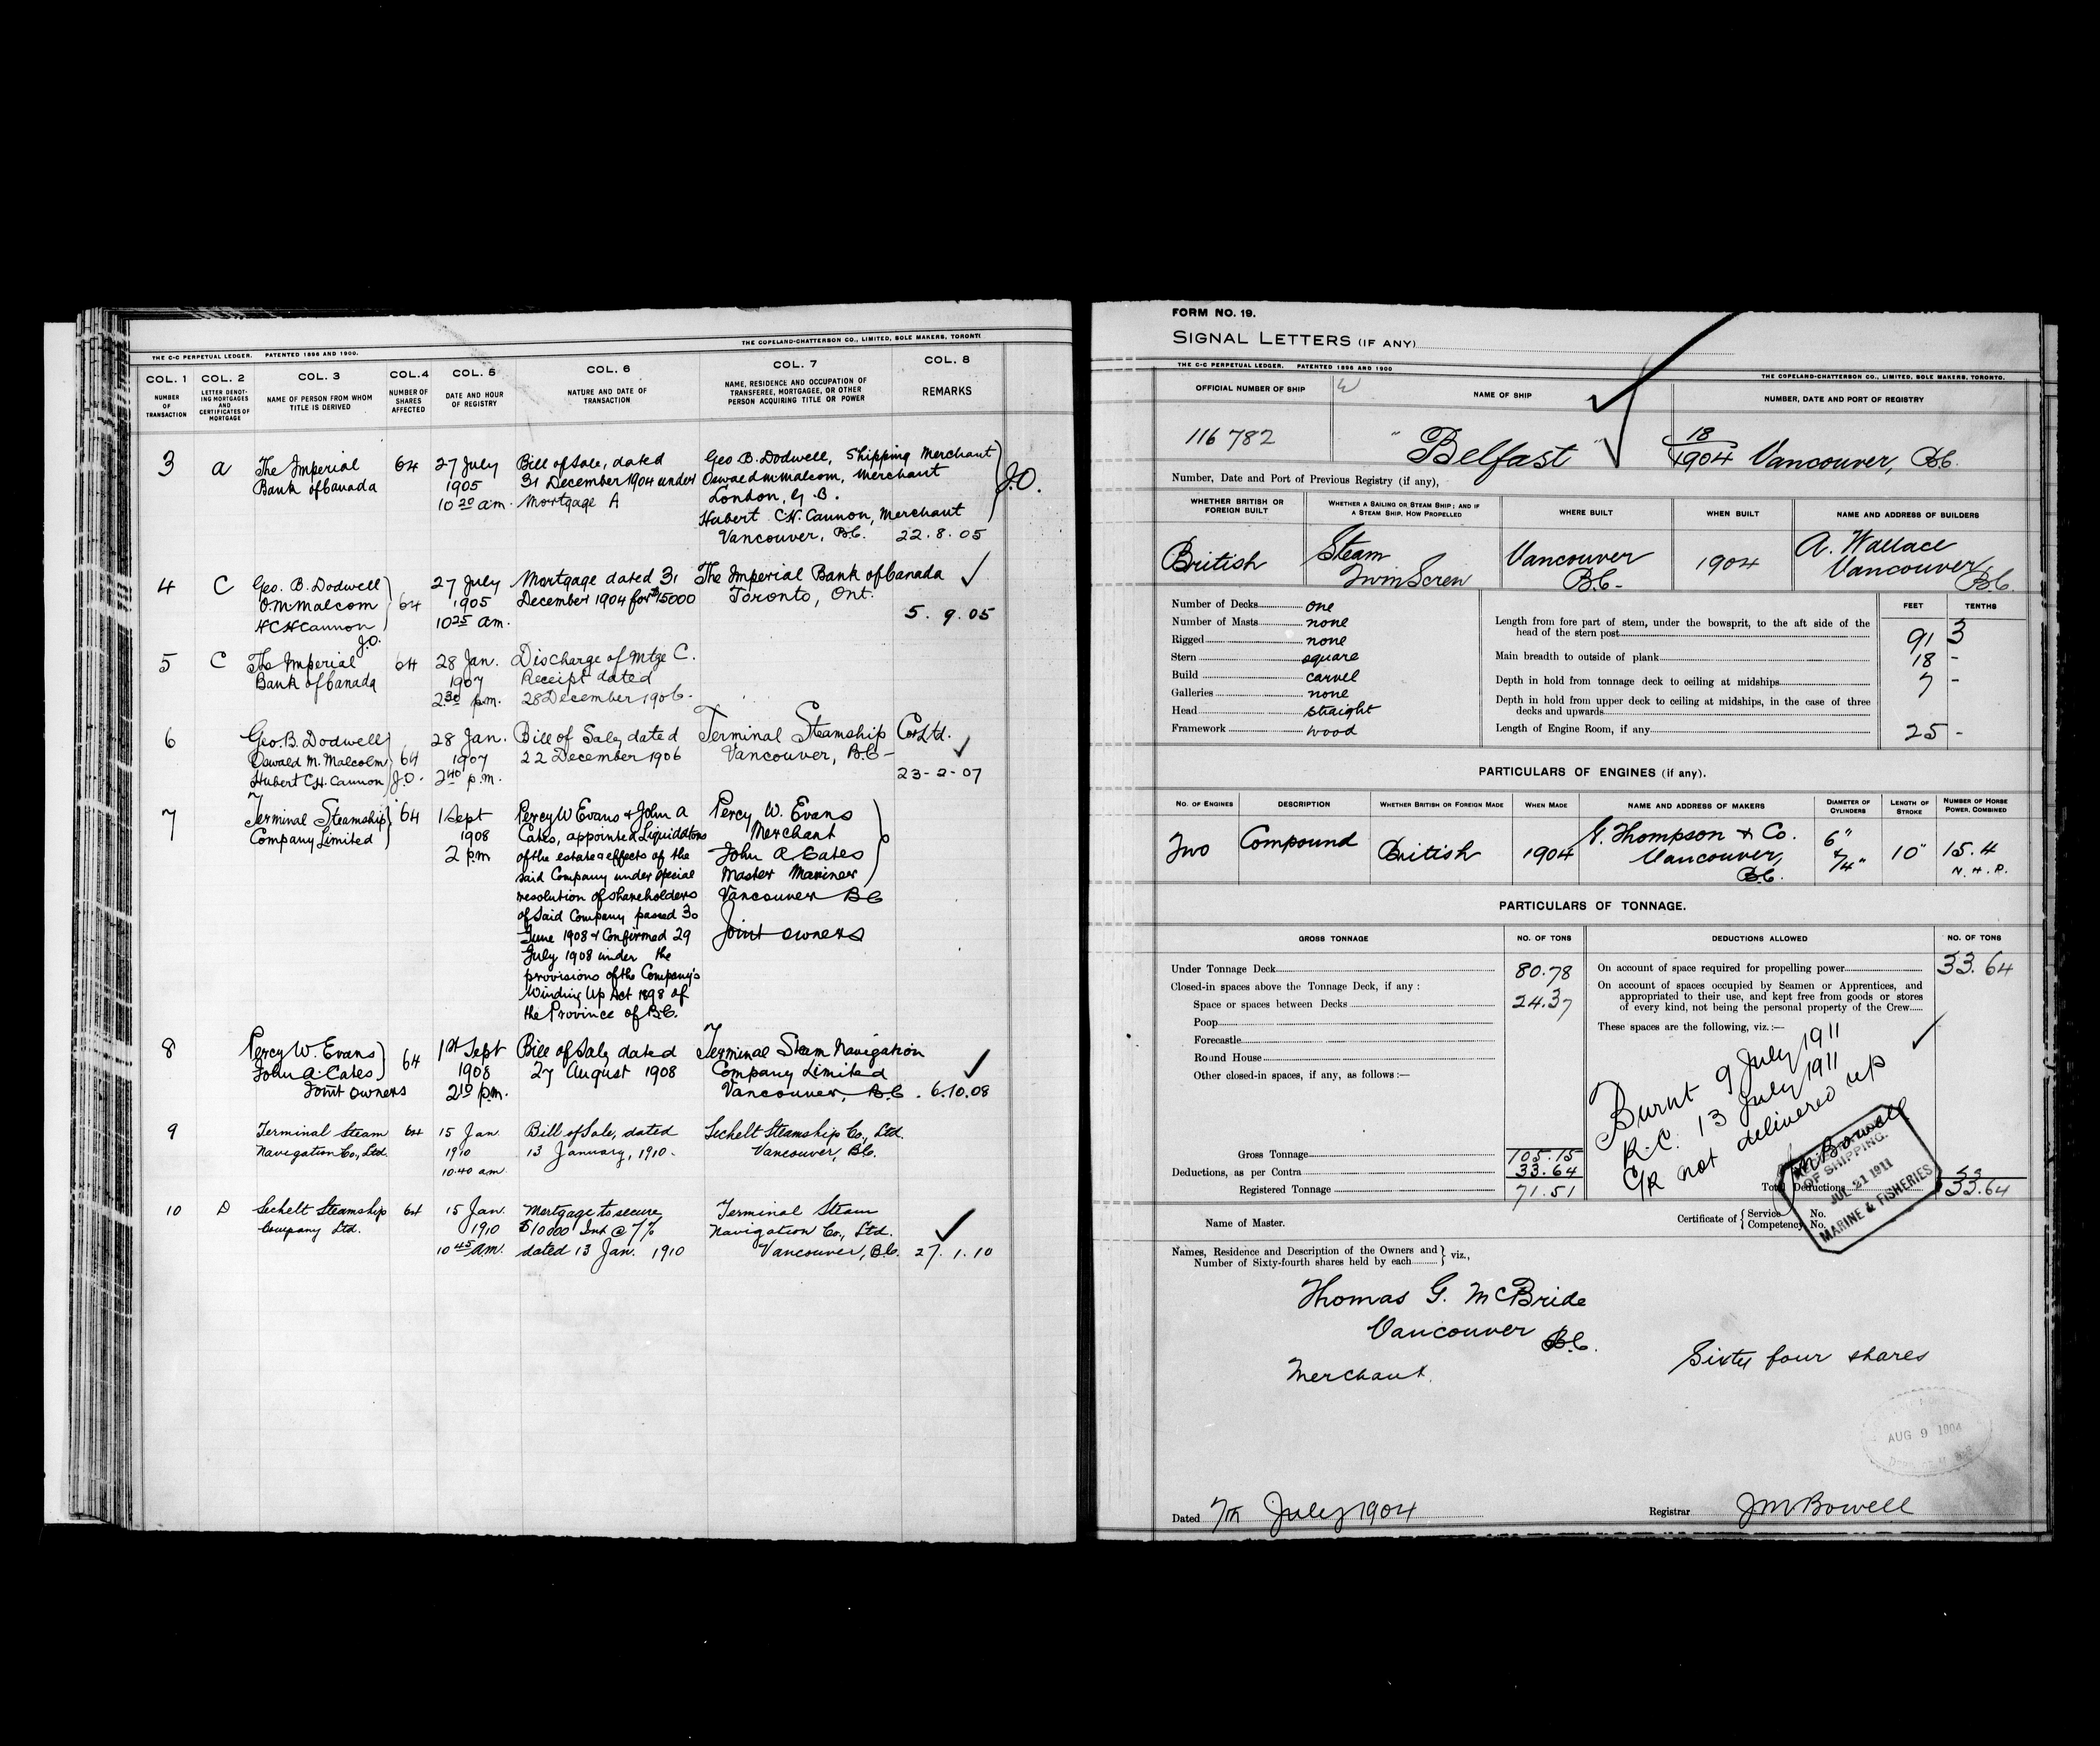 THE C-C PERPETUAL LEDGER. PATENTED 1896 AND 1900.
THE COPELAND-CHATTERSON CO., LIMITED, SOLE MAKERS, TORONTO
COL. 1 NUMBER OF TRANSACTION
COL. 2 LETTER DENOTING MORTGAGES AND CERTIFICATES OF MORTGAGE
COL. 3 NAME OF PERSON FROM WHOM TITLE IS DERIVED
COL. 4 NUMBER OF SHARES AFFECTED
COL. 5 DATE AND HOUR OF REGISTRY
COL. 6 NATURE AND DATE OF TRANSACTION
COL. 7 NAME, RESIDENCE AND OCCUPATION OF TRANSFEREE, MORTGAGEE, OR OTHER PERSON ACQUIRING TITLE OR POWER
COL. 8 REMARKS
3 a The Imperial 64 27 July Bill of Sale, dated Geo B. Dodwell, Shipping Merchant
Bank of Canada 1905 31 December 1904 under Oswald M Malcom, Merchant J.O.
10 20 am. Mortgage A London, G.B.
Hubert C.H. Cannon, Merchant
Vancouver, B.C. 22.8.05
4 C Geo. B. Dodwell 27 July Mortgage dated 31 The Imperial Bank of Canada
O.M Malcom 64 1905 December 1904 for $15000 Toronto, Ont.
H C H Cannon 10 25 am. 5. 9. 05
J.O.
5 C The Imperial 64 28 Jan. Discharge of Mtge C.
Bank of Canada 1907 Receipt dated
2 30 p.m. 28 December 1906.
6 Geo. B. Dodwell 28 Jan. Bill of Sale, dated Terminal Steamship Co Ltd.
Oswald M. Malcolm 64 1907 22 December 1906 Vancouver, B.C.
Hubert C.H. Cannon J.O. 2 40 p.m. 23-2-07
7 Terminal Steamship 64 1 Sept Percy W Evans & John A Percy W. Evans
Company Limited 1908 Cates, appointed Liquidators Merchant
2 p.m of the estate & effects of the John A Cates
said Company under special Master Mariner
resolution of shareholders Vancouver B C
of said Company passed 30 Joint owners
June 1908 & Confirmed 29
July 1908 under the
provisions of the Company's
Winding Up Act 1898 of
the Province of B.C.
8 Percy W. Evans 64 1st Sept Bill of Sale, dated Terminal Steam Navigation
John A. Cates 1908 27 August 1908 Company Limited
Joint owners 2 10 p.m. Vancouver, B.C. 6.10.08
9 Terminal Steam 64 15 Jan Bill of Sale, dated Sechelt Steamship Co., Ltd.
Navigation Co., Ltd. 1910 13 January, 1910. Vancouver, B.C.
10.40 am.
10 D Sechelt Steamship 64 15 Jan Mortgage to secure Terminal Steam
Company Ltd. 1910 $10000 Int @ 7% Navigation Co., Ltd.
10 45 am. dated 13 Jan. 1910 Vancouver, B.C. 27.1.10
FORM NO. 19.
SIGNAL LETTERS (IF ANY)
THE C-C PERPETUAL LEDGER. PATENTED 1896 AND 1900
THE COPELAND-CHATTERSON CO., LIMITED, SOLE MAKERS, TORONTO.
OFFICIAL NUMBER OF SHIP NAME OF SHIP NUMBER, DATE AND PORT OF REGISTRY
116 782 "Belfast" 18/1904 Vancouver, B.C.
Number, Date and Port of Previous Registry (if any),
WHETHER BRITISH OR FOREIGN BUILT
WHETHER A SAILING OR STEAM SHIP; AND IF A STEAM SHIP, HOW PROPELLED
WHERE BUILT
WHEN BUILT
NAME AND ADDRESS OF BUILDERS
British Steam Vancouver 1904 A. Wallace
Twin Screw B.C. Vancouver B.C.
FEET TENTHS
Number of Decks one
Number of Masts none
Rigged none
Stern square
Build carvel
Galleries none
Head straight
Framework wood
Length from fore part of stem, under the bowsprit, to the aft side of the
head of the stern post 91 3
Main breadth to outside of plank 18 -
Depth in hold from tonnage deck to ceiling at midships 7 -
Depth in hold from upper deck to ceiling at midships, in the case of three
decks and upwards
Length of Engine Room, if any 25 -
PARTICULARS OF ENGINES (if any).
NO. OF ENGINES DESCRIPTION WHETHER BRITISH OR FOREIGN MADE WHEN MADE NAME AND ADDRESS OF MAKERS DIAMETER OF CYLINDERS LENGTH OF STROKE NUMBER OF HORSE POWER, COMBINED
Two Compound British 1904 Thompson & Co. 6" 10" 15.4
Vancouver, B.C. N.H.P.
PARTICULARS OF TONNAGE.
GROSS TONNAGE NO. OF TONS DEDUCTIONS ALLOWED NO. OF TONS
Under Tonnage Deck 80.78
Closed-in spaces above the Tonnage Deck, if any :
Space or spaces between Decks 24.37
Poop
Forecastle
Round House
Other closed-in spaces, if any, as follows :—
Gross Tonnage 105.15
Deductions, as per Contra 33.64
Registered Tonnage 71.51
On account of space required for propelling power 33.64
On account of spaces occupied by Seamen or Apprentices, and
appropriated to their use, and kept free from goods or stores
of every kind, not being the personal property of the Crew
These spaces are the following, viz.:—
Burnt 9 July 1911
R.C. 13 July 1911
C/R not delivered up
JM Bowell
OF SHIPPING.
JUL 21 1911
MARINE & FISHERIES
Total Deductions 33.64
Name of Master.
Certificate of { Service No.
Competency No.
Names, Residence and Description of the Owners and
Number of Sixty-fourth shares held by each } viz.,
Thomas G. McBride
Vancouver B.C.
Merchant. Sixty four shares
AUG 9 1904
Dated 7th July 1904 Registrar JM Bowell